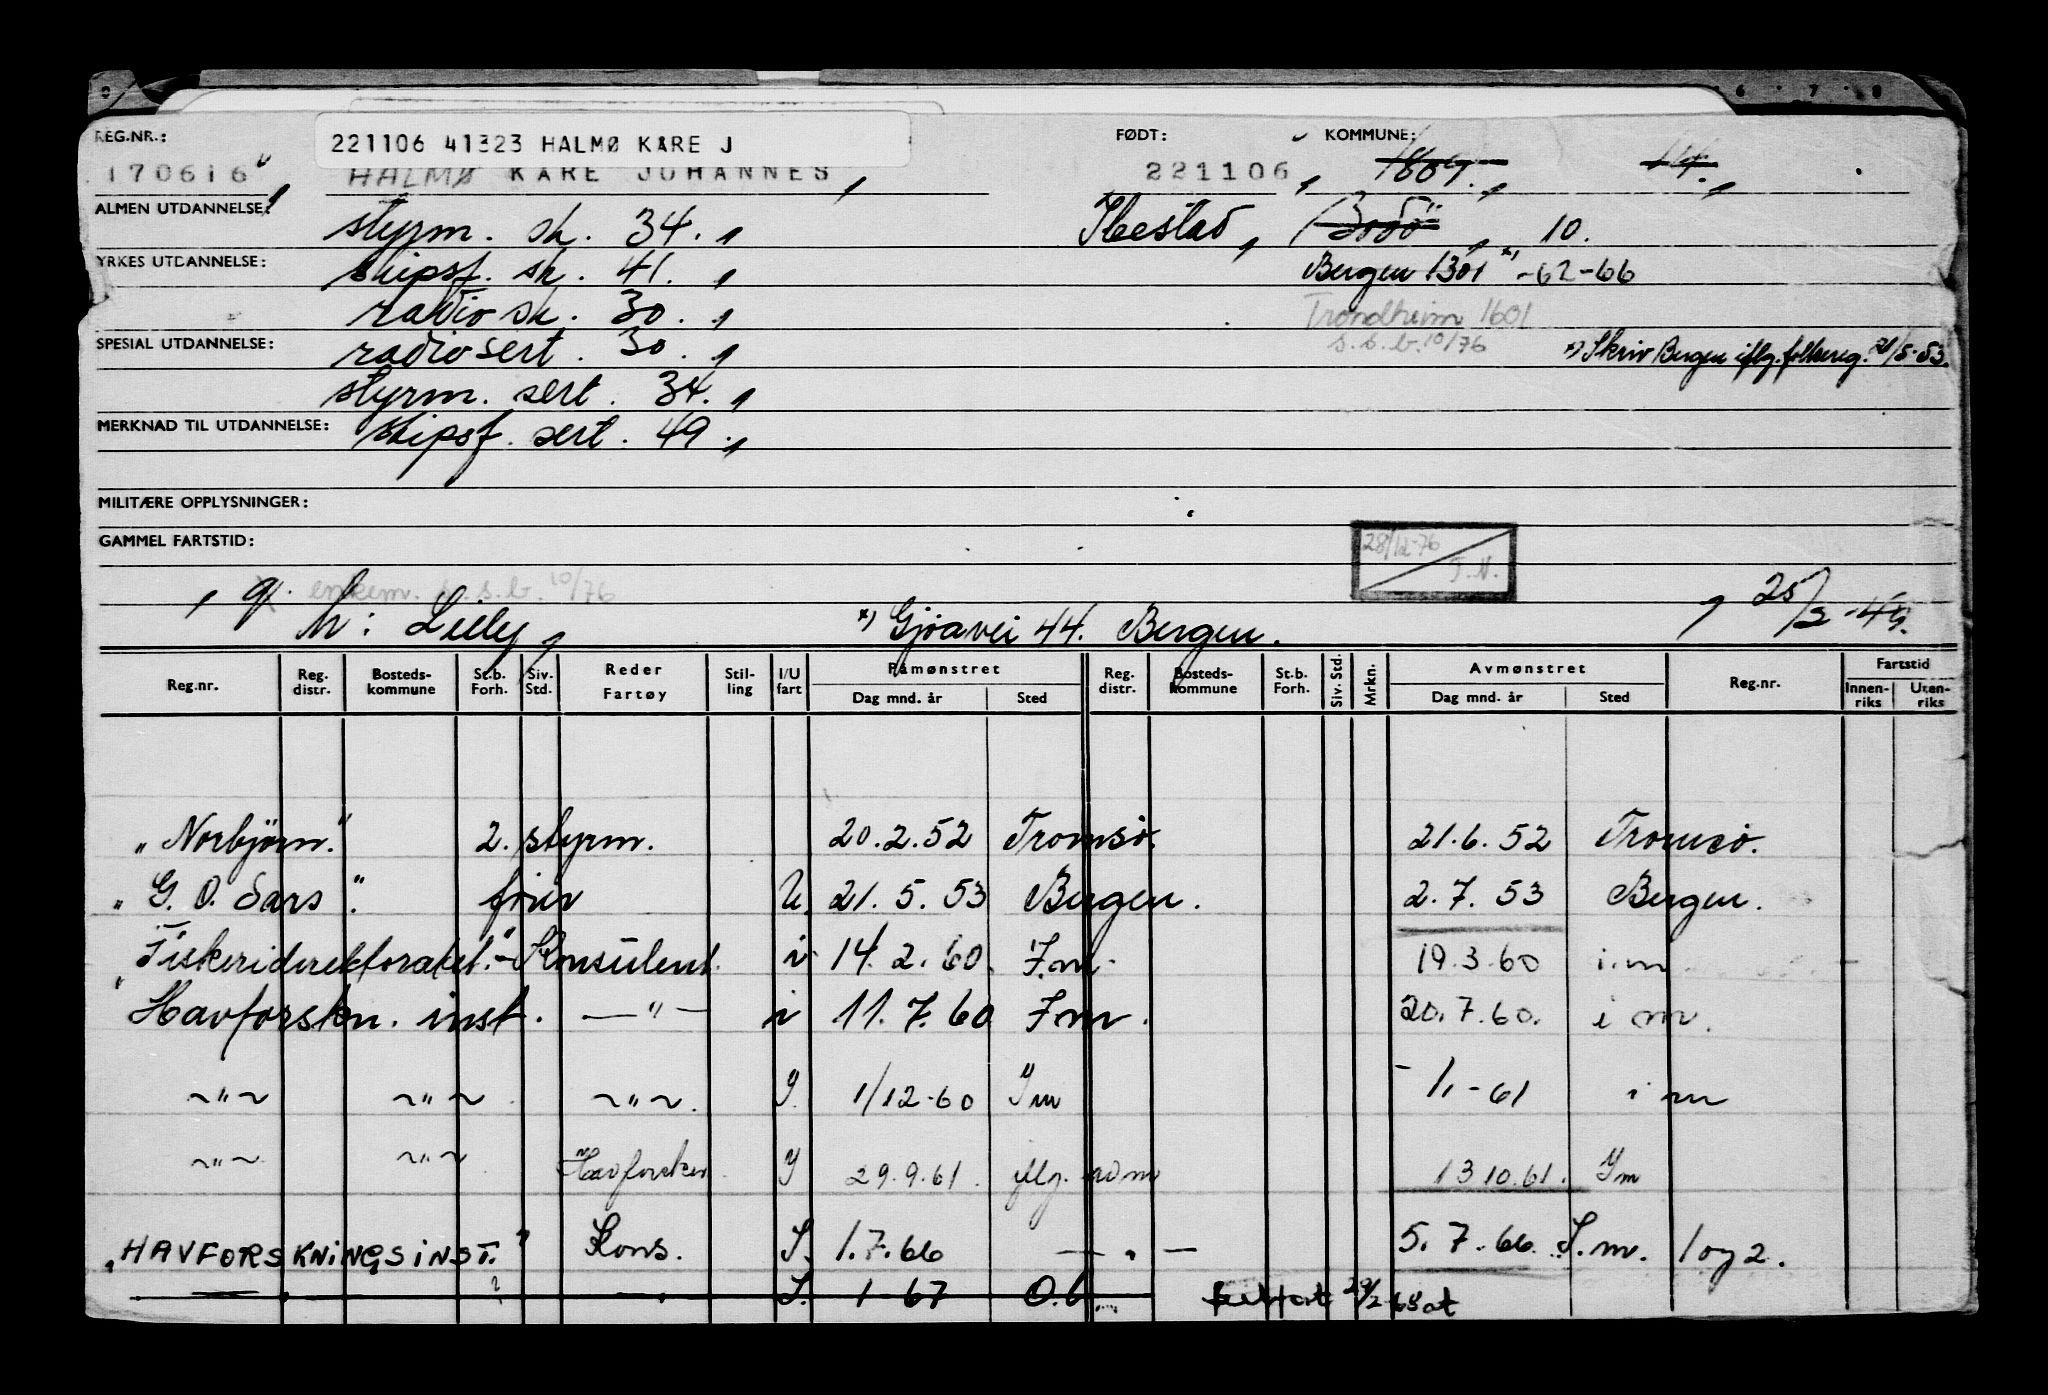 REG.NR.: 221106 41323 HALMØ KARE J FØDT: KOMMUNE:
170616 HALMØ KARE JOHANNES, 221106, 1809.,
ALMEN UTDANNELSE: styrm. sk. 34., Ibestad, Bodö, 10.
YRKES UTDANNELSE: skipsf. sk. 41., Bergen 1301 x) -62-66
radio sk. 30., Trondheim 1601
SPESIAL UTDANNELSE: radiosert. 30., s.s.b. 10/76 x) Skriv Bergen iflg. folkereg. 21/5-53.
styrm. sert. 34.,
MERKNAD TIL UTDANNELSE: skipsf. sert. 49.,
MILITÆRE OPPLYSNINGER:
GAMMEL FARTSTID: 28/12-76 T.H.
, g. enkem. s.s.b. 10/76
h: Lilly, x) Gjøavei 44. Bergen. , 25/2-49.
Reg.nr. Reg. distr. Bosteds-kommune St.b. Forh. Siv. Std. Reder Fartøy Stil-ling I/U fart Påmønstret Dag mnd. år Sted Reg. distr. Bosteds-kommune St.b. Forh. Siv. Std. Mrkn. Avmønstret Dag mnd. år Sted Reg.nr. Fartstid Innen-riks Uten-riks
"Norbjörn." 2. styrm. 20.2.52 Tromsö. 21.6.52 Tromsö.
"G. O. Sars". U. 21.5.53 Bergen. 2.7.53 Bergen.
"Fiskeridirektoratet."- Konsulent. i 14.2.60. I.m. 19.3.60 i.m.
Havforskn. inst. — " — i 11.7.60 I.m. 20.7.60. i m.
~ " ~ ~ " ~ ~ " ~. I. 1/12-60 I m - 1/1-61 i m
~ " ~ ~ " ~ Havforsker I 29.9.61. iflg. adm 13 10.61. I m
"HAVFORSKNINGSINST." Kons. I. 1.7.66 — " — 5.7.66. I.m. 1 og 2.
I. 1-67 O.b. 29/2-68 at